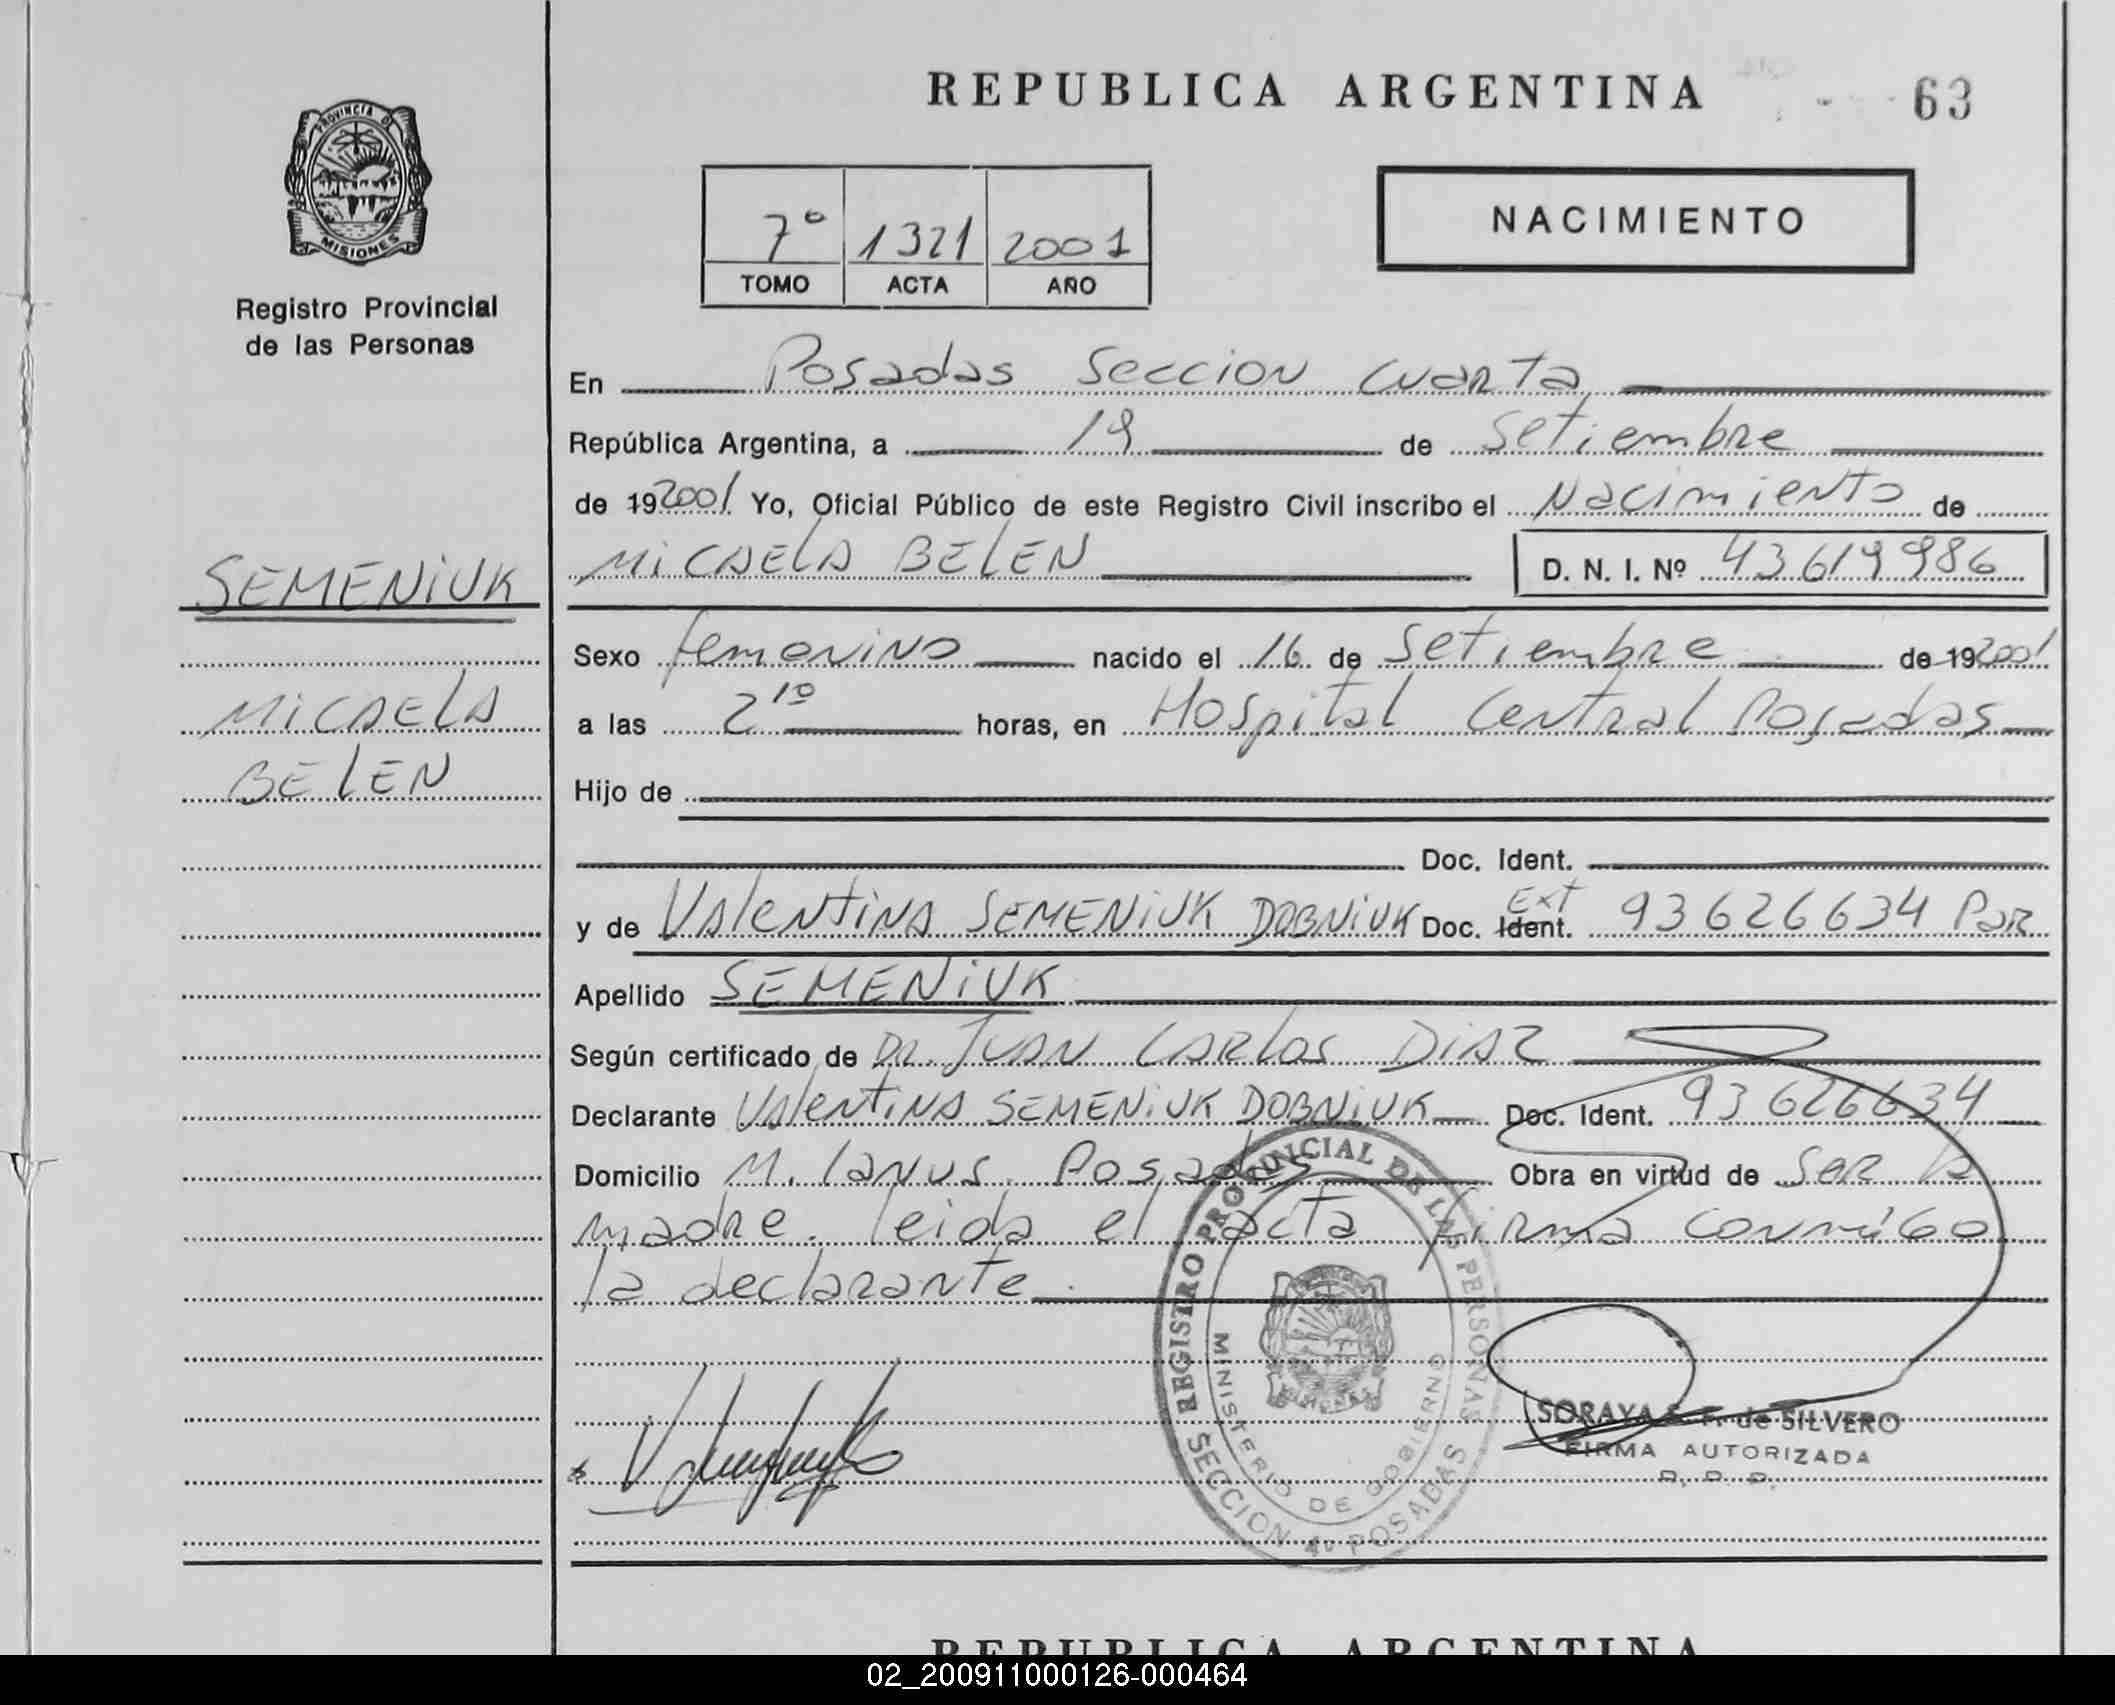 REPUBLICA ARGENTINA
63
PROVINCIA DE
MISIONES
Registro Provincial
de las Personas
7º 1321 2001
TOMO ACTA AÑO
NACIMIENTO
En Posadas Seccion Cuarta
República Argentina, a 19 de Setiembre
de 19 2001 Yo, Oficial Público de este Registro Civil inscribo el Nacimiento de
MICAELA BELEN D. N. I. Nº 43619986
SEMENIUK
MICAELA
BELEN
Sexo femenino nacido el 16 de Setiembre de 19 2001
a las 2¹⁰ horas, en Hospital Central Posadas
Hijo de
Doc. Ident.
y de Valentina SEMENIUK DOBNIUK Doc. Ident. Ext 93626634 Par
Apellido SEMENIUK
Según certificado de Dr. JUAN CARLOS DIAZ
Declarante Valentina SEMENIUK DOBNIUK Doc. Ident. 93626634
Domicilio M. Lanus. Posadas Obra en virtud de Ser la
madre. leida el acta firma conmigo
la declarante.
REGISTRO PROVINCIAL DE LAS PERSONAS
MINISTERIO DE GOBIERNO
SECCION 4º POSADAS
SORAYA de SILVERO
FIRMA AUTORIZADA
REPUBLICA ARGENTINA
02_200911000126-000464